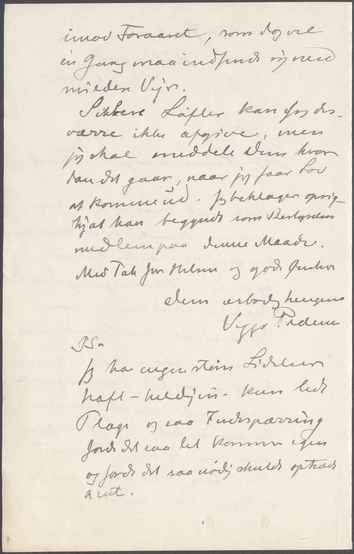 imod Foraaret, som dog vel
en Gang maa indfinde sig med
milden Vejr.
Sikkert Løfter kan jeg des-
værre ikke afgive, men
jeg skal meddele Dem hvor-
dan det gaar, naar jeg faar Lov
at komme ud. Jeg beklager oprig-
tigt at have begyndt som
medlem paa denne Maade.
Med Tak for Hilsen og gode Ønsker
Deres ærbødig hengivne
Viggo Pedersen
P.S.
Jeg har ingen større Lidelser
haft – heldigvis – kun lidt
Plage og saa Indespærring
fordi det saa let kommer igen
og fordi det saa nødig skulde optræde
acut.